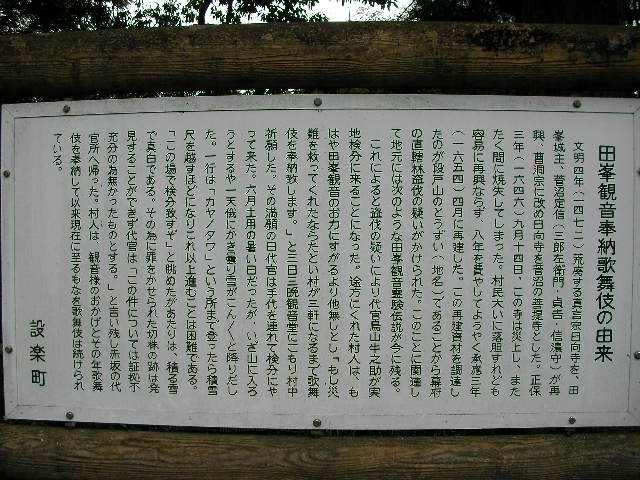 田峯観音奉納歌舞伎の由来
文明四年(一四七二)荒廃する真言宗日向寺を、田
峯城主、菅沼定信(三郎左衛門・貞吉・信濃守)が再
興、曹洞宗に改め日向寺を菅沼の菩提寺とした。正保
三年(一六四六)九月十四日、この寺は炎上し、また
たく間に焼失してしまった。村民大いに落胆すれども
容易に再興ならず、八年を費やしてようやく承應三年
(一六五四)四月に再建した。この再建資材を調達し
たのが段戸山のとうずい(地名)であることから幕府
の直轄林盗伐の疑いがかけられた。このことに関連し
て地元には次のような田峯観音霊験伝説が今に残る。
これによると盗伐の疑いにより代官鳥山牛之助が実
地検分に来ることになった。途方にくれた村人は、も
はや田峯観音のお力にすがるより他無しとし「もし災
難を救ってくれたならたとい村が三軒になるまで歌舞
伎を奉納致します。」と三日三晩観音堂にこもり村中
祈願した。その満願の日代官は手代を連れて検分にや
って来た。六月土用の暑い日だったが、いざ山に入ろ
うとするや一天俄にかき曇り雪がこん〱と降りだし
た。一行は「カヤノタワ」という所まで登ったら積雪
尺を越すほどになりこれ以上進むことは困難である。
「この場で検分致すぞ」と眺めたがあたりは、積る雪
で真白である。その為に罪をかせられた切株の跡は発
見することができず代官は「この件については証拠不
充分の為無かったものとする。」と言い残し赤坂の代
官所へ帰った。村人は、観音様のおかげとその年歌舞
伎を奉納して以来現在に至るもなを歌舞伎は続けられ
ている。
設楽町